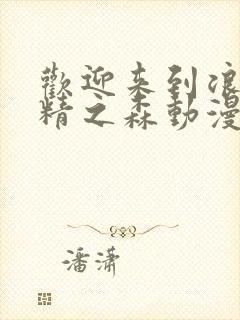 歡迎来到浪
精之森動漫
潘潇